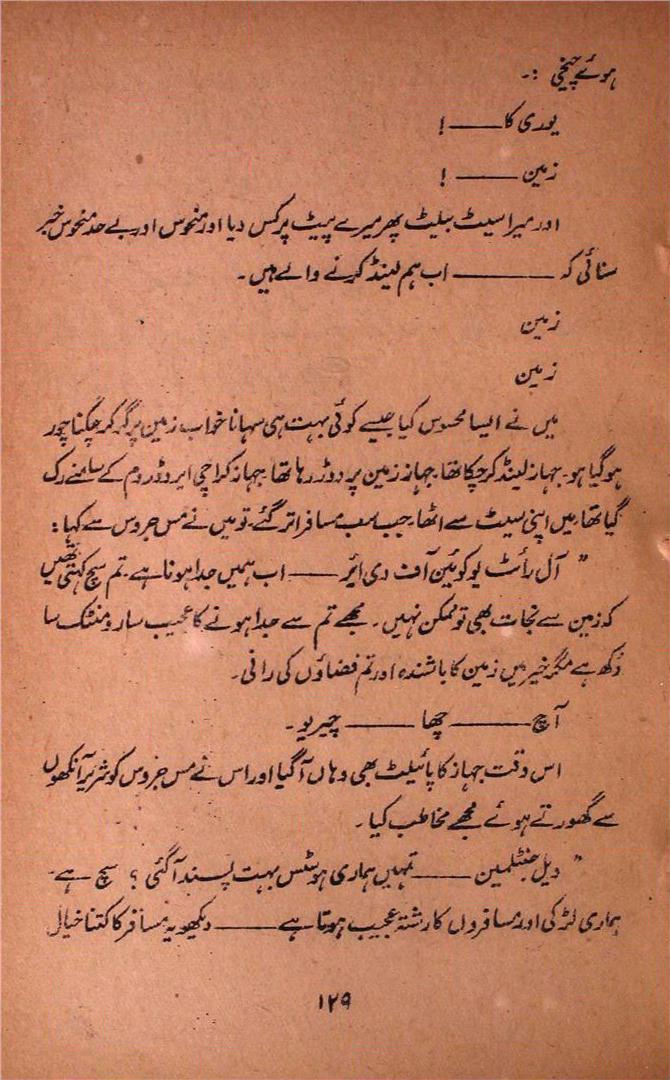 ہوئے چیخی :۔
یوری کا ــــــ !
زمین ــــــ !
اور میرا سیٹ بیلیٹ پھر میرے پیٹ پر کس دیا اور منحوس اور بے حد منحوس خبر
سنائی کہ ــــــــــ اب ہم لینڈ کرنے والے ہیں۔
زمین
زمین
میں نے ایسا محسوس کیا جیسے کوئی بہت ہی سہانا خواب زمین پر گر کر چکنا چور
ہو گیا ہو۔ جہاز لینڈ کر چکا تھا۔ جہاز زمین پر دوڑ رہا تھا۔ جہاز کراچی ایروڈروم کے سامنے رک
گیا تھا۔ میں اپنی سیٹ سے اٹھا۔ جب سب مسافر اتر گئے۔ تو میں نے مس جروس سے کہا :
" آل رائٹ یو کوئین آف دی ائر ــــــ اب ہمیں جدا ہونا ہے۔ تم سچ کہتی تھیں
کہ زمین سے نجات بھی تو ممکن نہیں۔ مجھے تم سے جدا ہونے کا عجیب سا رومنٹک سا
دکھ ہے مگر خیر میں زمین کا باشندہ اور تم فضاؤں کی رانی۔
آچ ـــــــــ چھا ــــــــ چیریو۔
اس وقت جہاز کا پائیلیٹ بھی وہاں آ گیا اور اس نے مس جروس کو شریر آنکھوں
سے گھورتے ہوئے مجھے مخاطب کیا۔
" ویل جنٹلمین ــــــ تمہیں ہماری ہوسٹس بہت پسند آ گئی ؟ سچ ہے۔
ہماری لڑکی اور مسافروں کا رشتہ عجیب ہوتا ہے ــــــ دیکھو یہ مسافر کا کتنا خیال
۱۲۹